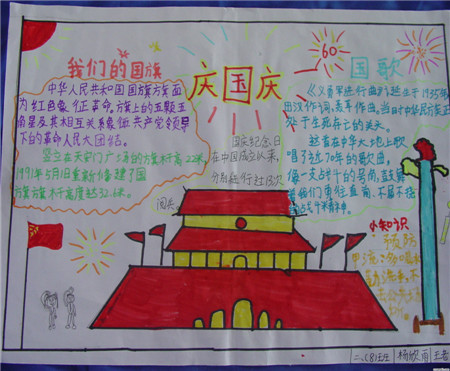 我们的国旗
中华人民共和国国旗旗面
为红色象征革命。旗上的五颗五
角星及其相互关系象征共产党领导
下的革命人民大团结。
竖立在天安门广场的旗杆高22米
1991年5月1日重新修建了国
旗旗杆高度达32.6米。
庆国庆
60
国庆纪念日
在中国成立以来,
国歌
《义勇军进行曲》诞生于1935年
田汉作词,聂耳作曲,当时中华民族正
处于生死存亡的关头。
这首在中华大地上歌
唱了近70年的歌曲,
像一支战斗的号角,鼓舞
着我们勇往直前、不屈不挠
小知识
预防
二、(8)班
杨欣雨